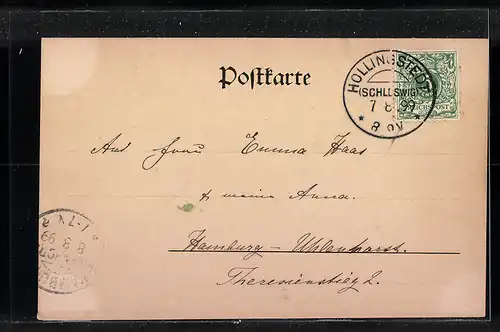 Postkarte
HOLLINGSTEDT
(SCHLESWIG)
7 8 99
8-9V
Frau Emma Haas
& meine Anna.
Hamburg - Uhlenhorst.
Theresienstieg 2.
1-7V
8 8 99